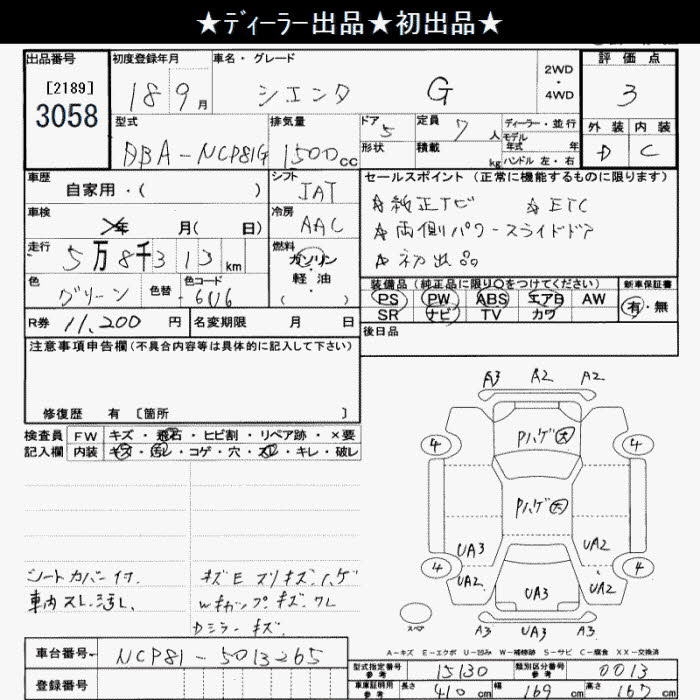 ★ディーラー出品★初出品★
出品番号 初度登録年月 車名・グレード 2WD・4WD 評価点
[2189]
3058
18 9月 シエンタ G 3
型式 排気量 ドア 5 定員 7人 ディーラー・並行 外装 内装
DBA-NCP81G 1500cc 形状 積載 kg モデル年式 年 D C
ハンドル 左・右
車歴 シフト セールスポイント (正常に機能するものに限ります)
自家用・( ) IAT
☆純正TV ☆ETC
車検 年 月( 日) 冷房 AAC
☆両側パワースライドドア
走行 5万8千313km 燃料 ガソリン・軽油・( )
☆初出品
色 グリーン 色替 色コード 6U6
装備品 (純正品に限り○をつけてください) 新車保証書
PS PW ABS エアB AW 有・無
SR ナビ TV カワ
R券 11,200円 名変期限 月 日
後日品
注意事項申告欄(不具合内容等は具体的に記入して下さい)
修復歴 有 〔箇所 〕
検査員 FW キズ・飛石・ヒビ割・リペア跡・×要
記入欄 内装 キズ・汚レ・コゲ・穴・スレ・キレ・破レ
A3 A2 A2
4 Pハゲ大 4
Pハゲ大
UA3 UA2
4 4
UA2 UA3 UA2
スペア A3 UA3 A3
シートカバー付. キズE スリキズ.ハゲ
車内スレ.汚レ. Wキガップキズ.ワレ
Dミラーキズ.
A-キズ E-エクボ U-凹み W-補修跡 S-サビ C-腐食 XX-交換済
車台番号 NCP81-5013265
型式指定番号 参考 15130 類別区分番号 参考 0013
登録番号
車庫証明用 参考 長さ 410cm 幅 169cm 高さ 167cm